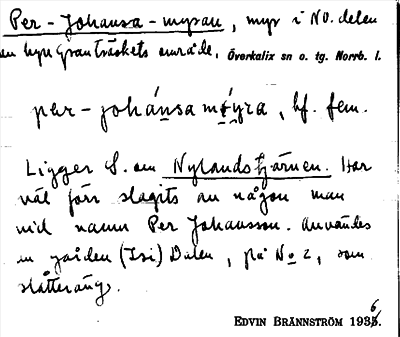 Per-Johansa-myran, myr i NO. delen
av byn Granträskets område. Överkalix sn o. tg. Norrb. l.
per-johánsa mýra, bf. fem.
Ligger S. om Nylandstjärnen. Har
väl förr slagits av någon man
vid namn Per Johansson. Användes
en gården (Isi) Dalen, på No 2, som
slåtteräng.
EDVIN BRÄNNSTRÖM 1936.